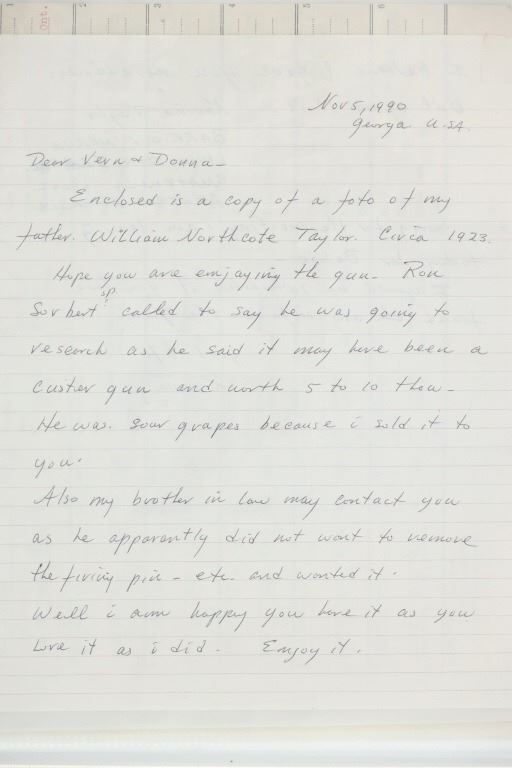 Ont.
1 2 3 4 5 6
Nov 5, 1990
Georga U.S.A.
Dear Vern & Donna -
Enclosed is a copy of a foto of my
father. William Northcote Taylor. Circa 1923.
Hope you are enjaying the gun. Ron
sp
Sorbert? called to say he was going to
research as he said it may have been a
Custer gun and worth 5 to 10 thow-
He was. sour grapes because i sold it to
you.
Also my brother in law may contact you
as he apparantly did not want to remove
the firing pin - etc. and wanted it.
Well i am happy you have it as you
love it as i did. Enjoy it.